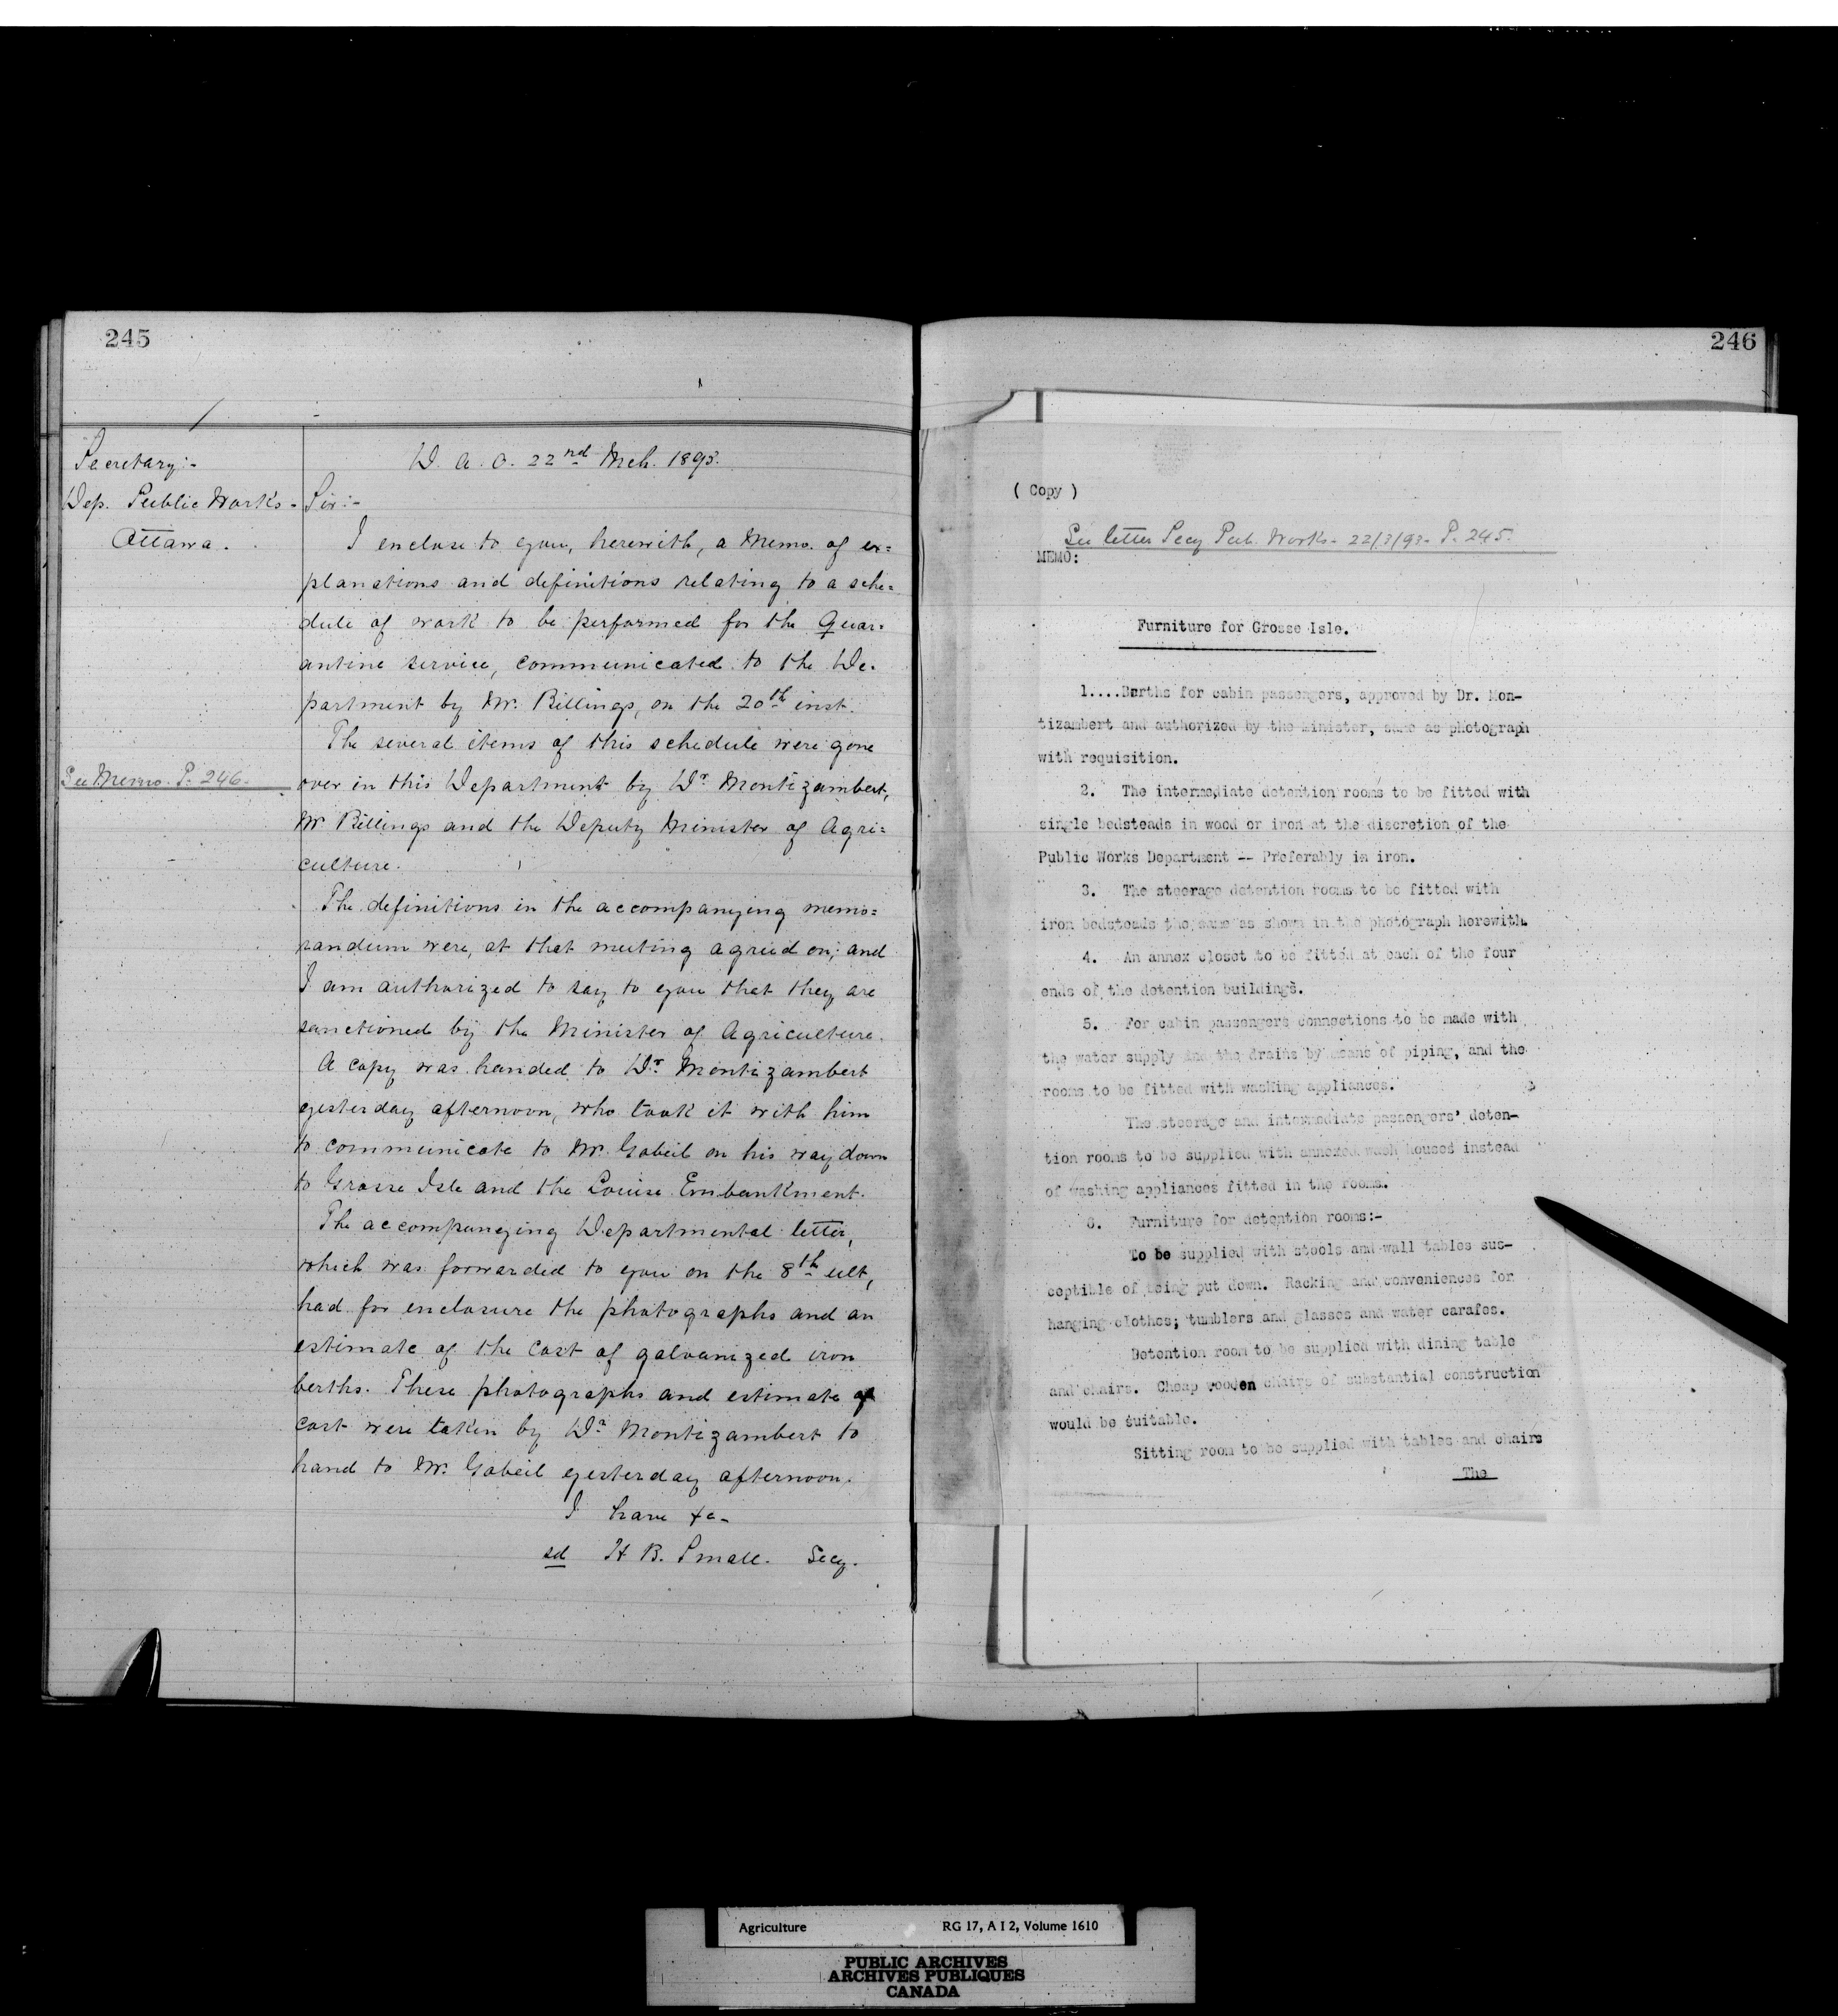 245
Secretary:-
Dep. Public Works-
Ottawa.
See Memo. P. 246-
D. A. O. 22nd Mch. 1893.
Sir:-
I enclose to you, herewith, a Memo. of ex=
planations and definitions relating to a sche=
dule of work to be performed for the Quar=
antine service, communicated to the De-
partment by Mr. Billings, on the 20th inst.
The several items of this schedule were gone
over in this Department by Dr. Montizambert,
Mr Billings and the Deputy Minister of Agri=
culture.
The definitions in the accompanying memo=
randum were, at that meeting agreed on; and
I am authorized to say to you that they are
sanctioned by the Minister of Agriculture.
A copy was handed to Dr. Montizambert
yesterday afternoon, who took it with him
to communicate to Mr. Gobeil on his way down
to Grosse Isle and the Louise Embankment.
The accompanying Departmental letter,
which was forwarded to you on the 8th ult,
had for enclosure the photographs and an
estimate of the cost of galvanized iron
berths. These photographs and estimate of
cost were taken by Dr. Montizambert to
hand to Mr. Gobeil yesterday afternoon.
I have &c-
sd H. B. Small. Secy.
246
( Copy )
See letter Secy Pub. Works- 22/3/93- P. 245.
MEMO:
Furniture for Grosse Isle.
1....Berths for cabin passengers, approved by Dr. Mon-
tizambert and authorized by the Minister, same as photograph
with requisition.
2. The intermediate detention rooms to be fitted with
single bedsteads in wood or iron at the discretion of the
Public Works Department -- Preferably in iron.
3. The steerage detention rooms to be fitted with
iron bedsteads the same as shown in the photograph herewith.
4. An annex closet to be fitted at each of the four
ends of the detention buildings.
5. For cabin passengers connections to be made with
the water supply and the drains by means of piping, and the
rooms to be fitted with washing appliances.
The steerage and intermediate passengers' deten-
tion rooms to be supplied with annexed wash houses instead
of washing appliances fitted in the rooms.
6. Furniture for detention rooms:-
To be supplied with stools and wall tables sus-
ceptible of being put down. Racking and conveniences for
hanging clothes; tumblers and glasses and water carafes.
Detention room to be supplied with dining table
and chairs. Cheap wooden chairs of substantial construction
would be suitable.
Sitting room to be supplied with tables and chairs
The
Agriculture RG 17, A I 2, Volume 1610
PUBLIC ARCHIVES
ARCHIVES PUBLIQUES
CANADA